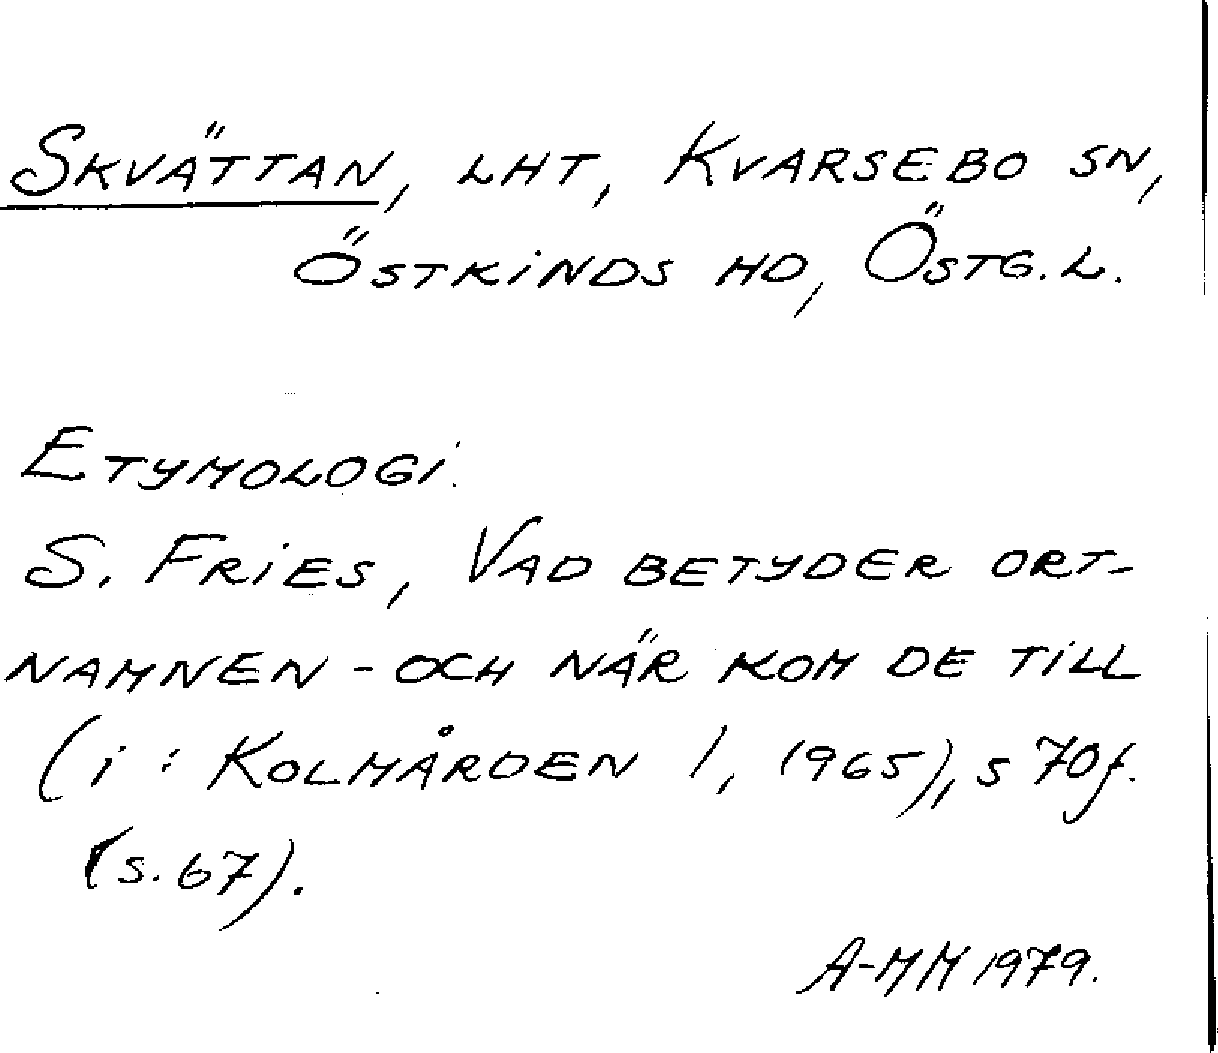 Skvättan, lht, Kvarsebo sn,
Östkinds hd, Östg.l.
Etymologi.
S. Fries, Vad betyder ort-
namnen - och när kom de till
(i: Kolmården 1, 1965), s 70f.
(s. 67).
A-MM 1979.